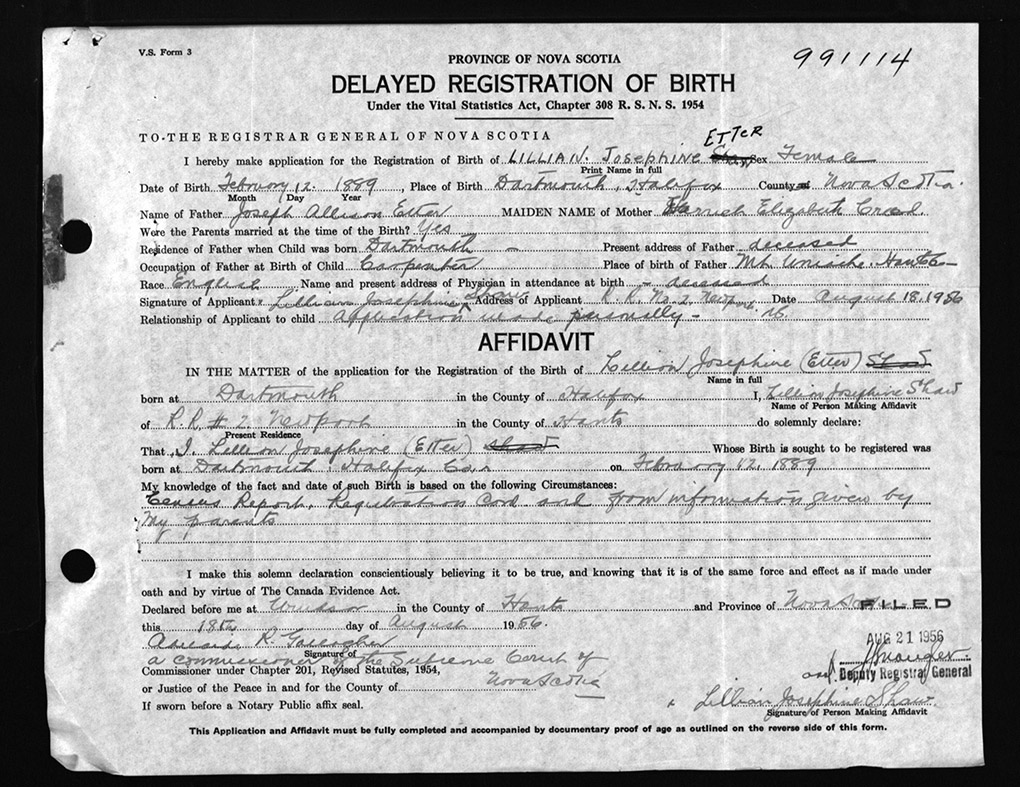 V.S. Form 3
991114
PROVINCE OF NOVA SCOTIA
DELAYED REGISTRATION OF BIRTH
Under the Vital Statistics Act, Chapter 308 R. S. N. S. 1954
TO-THE REGISTRAR GENERAL OF NOVA SCOTIA
ETTER
I hereby make application for the Registration of Birth of LILLIAN. Josephine Shaw Sex Female
Print Name in full
Date of Birth February 12. 1889, Place of Birth Dartmouth, Halifax County of Nova Scotia.
Month Day Year
Name of Father Joseph Allison Etter MAIDEN NAME of Mother Harriet Elizabeth
Were the Parents married at the time of the Birth? Yes
Residence of Father when Child was born Dartmouth - Present address of Father deceased
Occupation of Father at Birth of Child Carpenter Place of birth of Father Mt Uniacke. Hants
Race English Name and present address of Physician in attendance at birth - deceased
Signature of Applicant x Lillian Josephine Shaw Address of Applicant R. R. No. 2. Newport Date August 18, 1956
Relationship of Applicant to child Application made personally - NS.
AFFIDAVIT
IN THE MATTER of the application for the Registration of the Birth of Lillian Josephine (Etter) Shaw
Name in full
born at Dartmouth in the County of Halifax I, Lillian Josephine Shaw
Name of Person Making Affidavit
of R. R. # 2. Newport in the County of Hants do solemnly declare:
Present Residence
That I. Lillian Josephine (Etter) Shaw Whose Birth is sought to be registered was
born at Dartmouth. Halifax Co. on February 12. 1889
My knowledge of the fact and date of such Birth is based on the following Circumstances:
Census Report, Registration Card and from information given by
My parents
I make this solemn declaration conscientiously believing it to be true, and knowing that it is of the same force and effect as if made under
oath and by virtue of The Canada Evidence Act.
Declared before me at Windsor in the County of Hants and Province of Nova Scotia
FILED
this 18th day of August 1956.
AUG 21 1956
R. Gallagher
Signature of
a commissioner of the Supreme Court of
Commissioner under Chapter 201, Revised Statutes, 1954,
Deputy Registrar General
or Justice of the Peace in and for the County of Nova Scotia
x Lillian Josephine Shaw.
If sworn before a Notary Public affix seal.
Signature of Person Making Affidavit
This Application and Affidavit must be fully completed and accompanied by documentary proof of age as outlined on the reverse side of this form.